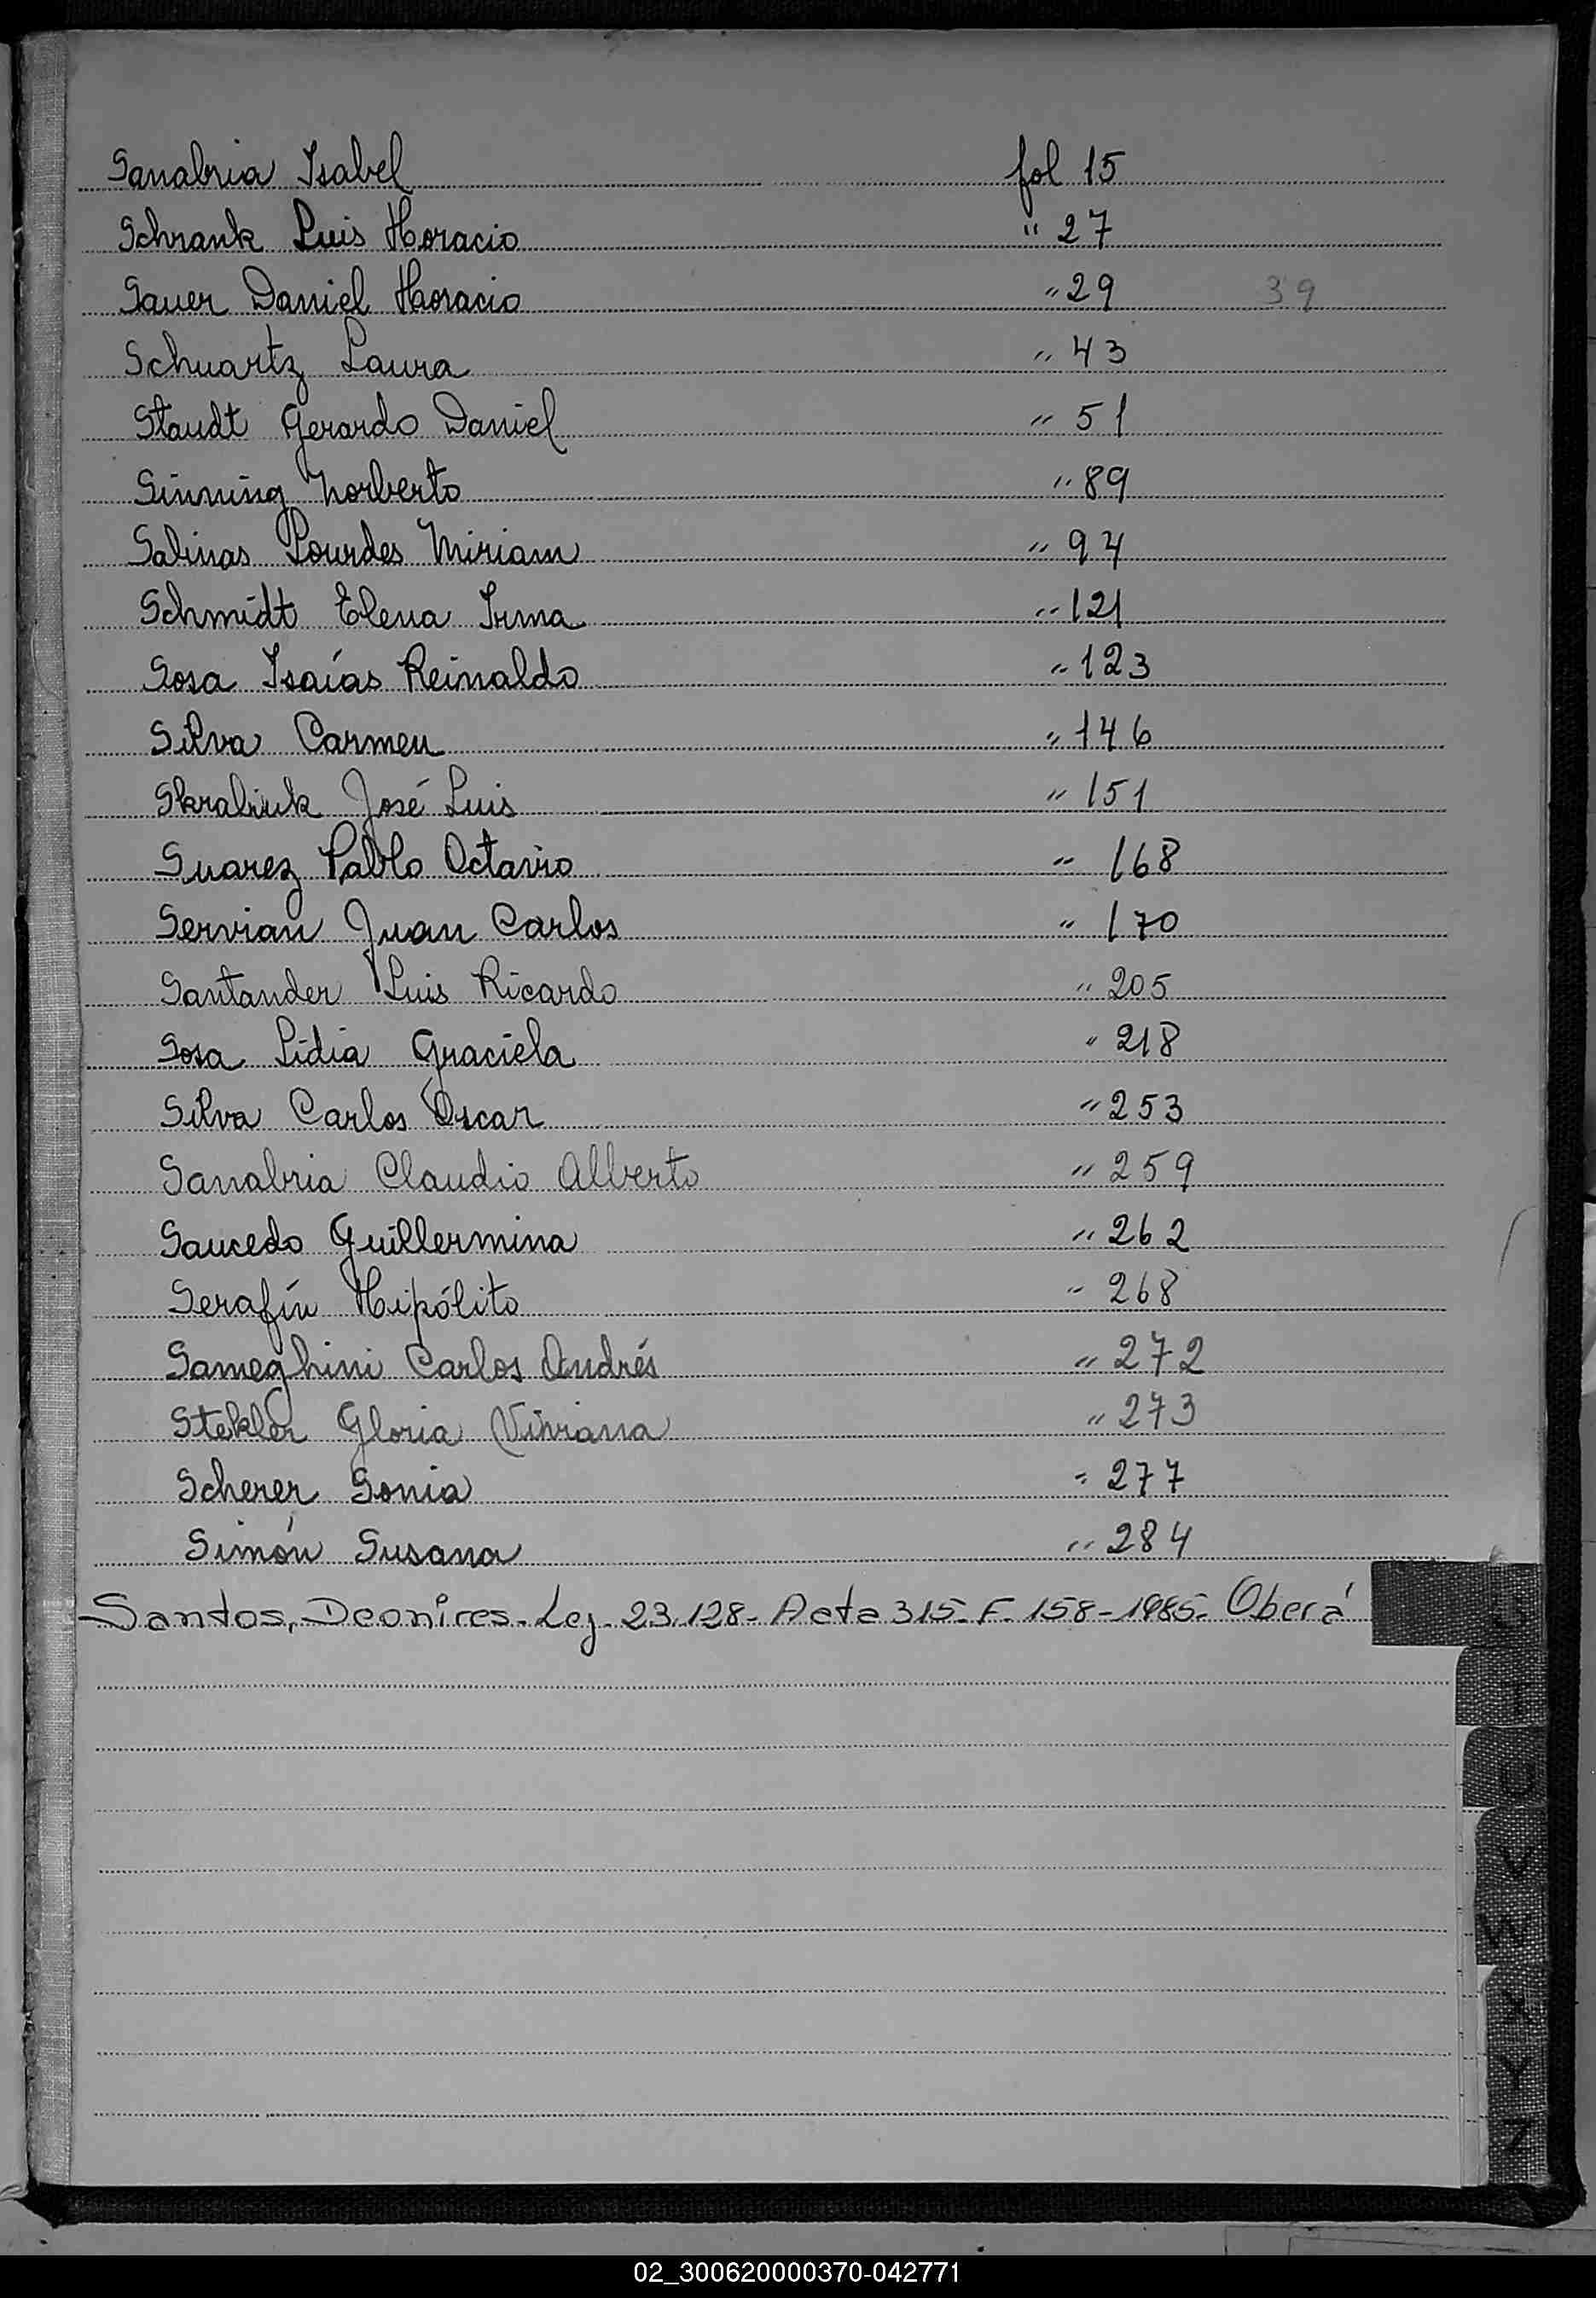 Sanabria Isabel fol 15
Schrank Luis Horacio " 27
Sauer Daniel Horacio " 29 39
Schuartz Laura " 43
Staudt Gerardo Daniel " 51
Sinning Norberto " 89
Salinas Lourdes Miriam " 94
Schmidt Elena Irma " 121
Sosa Isaías Reinaldo " 123
Silva Carmen " 146
Skraliuk José Luis " 151
Suarez Pablo Octavio " 168
Servian Juan Carlos " 170
Santander Luis Ricardo " 205
Sosa Lidia Graciela " 218
Silva Carlos Oscar " 253
Sanabria Claudio Alberto " 259
Saucedo Guillermina " 262
Serafín Hipólito " 268
Sameghini Carlos Andrés " 272
Stekler Gloria Viviana " 273
Scherer Sonia " 277
Simón Susana " 284
Santos, Deonires. Leg. 23.128- Acta 315- F. 158-1985- Oberá
T
U
V
W
X
Y
Z
02_300620000370-042771